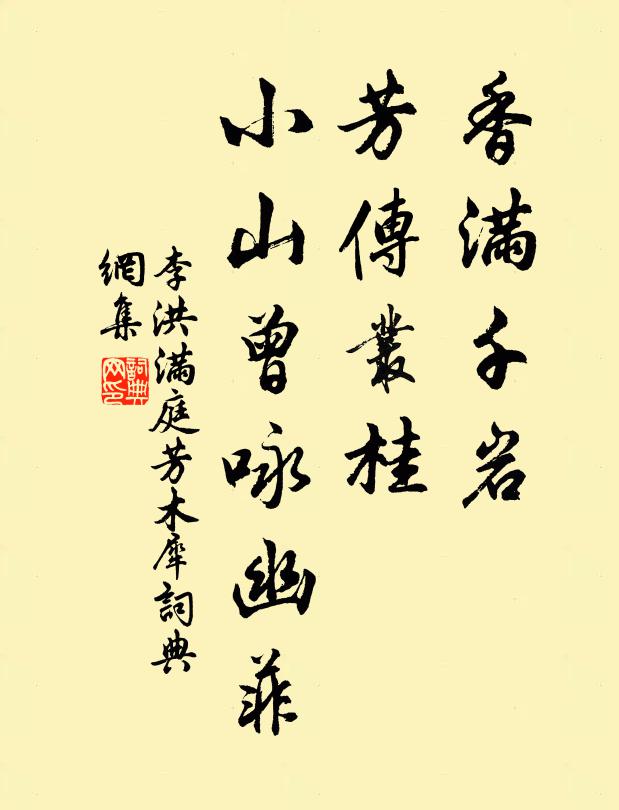 香满千岩
芳傳叢桂
小山曾咏幽菲
李洪满庭芳木犀詞典
網集
詞典
网印